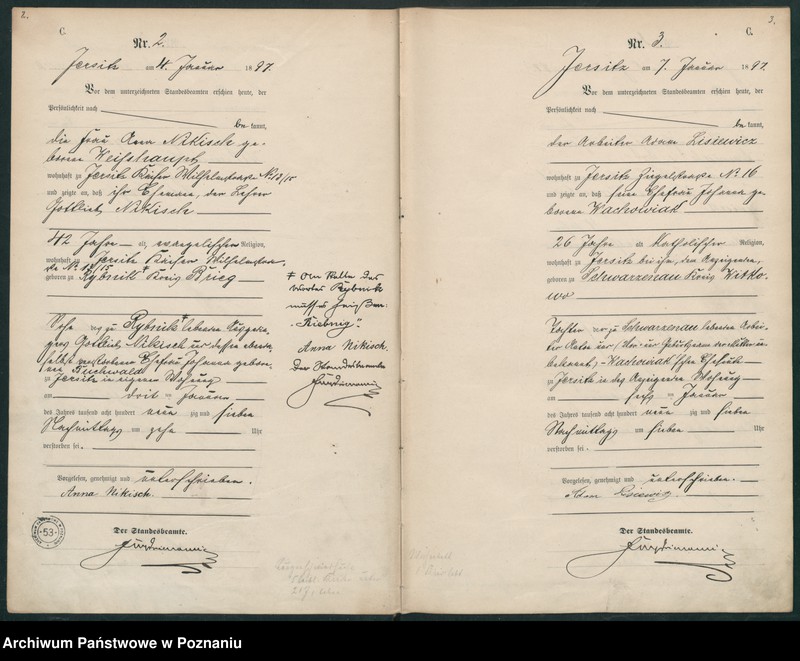 2.
C.
Nr. 2.
Jersitz am 4. Januar 1897.
Vor dem unterzeichneten Standesbeamten erschien heute, der
Persönlichkeit nach
be kannt,
die Frau Anna Nikisch ge-
borene Weißhaupt
wohnhaft zu Jersitz Kaiser Wilhelmstraße No 13/15
und zeigte an, daß ihr Ehemann, der Lehrer
Gottlieb Nikisch
42 Jahre alt, evangelischer Religion,
wohnhaft zu Jersitz Kaiser Wilhelmstra-
ße No 13/15
geboren zu Rybnik + Kreis Brieg
Sohn des zu Rybnik + lebenden
Gottlieb Nikisch und dessen
verstorbenen Ehefrau Johanna gebore-
nen Buchwald
zu Jersitz in eigener Wohnung
am Januar
des Jahres tausend acht hundert neun zig und sieben
Nachmittags um zehn Uhr
verstorben sei.
Vorgelesen, genehmigt und unterschrieben.
Anna Nikisch.
Der Standesbeamte.
+ An Stelle des
Wortes Rybnik
muß es heißen:
"Riebnig".
Anna Nikisch.
Der Standesbeamte
53
3.
C.
Nr. 3.
Jersitz am 7. Januar 1897.
Vor dem unterzeichneten Standesbeamten erschien heute, der
Persönlichkeit nach
be kannt,
der Arbeiter Adam Lisiewicz
wohnhaft zu Jersitz Ziegelstraße No 16
und zeigte an, daß seine Ehefrau Johanna ge-
borene Wachowiak
26 Jahre alt, Katholischer Religion,
wohnhaft zu Jersitz bei ihm, dem Anzeigenden,
geboren zu Schwarzenau Kreis Witko-
wo
Tochter der zu Schwarzenau lebenden Arbei-
bekannt, Wachowiak'schen Eheleute
zu Jersitz in des Anzeigenden Wohnung
am sechs ten Januar
des Jahres tausend acht hundert neun zig und sieben
Nachmittags um sieben Uhr
verstorben sei.
Vorgelesen, genehmigt und unterschrieben.
Adam
Der Standesbeamte.
Archiwum Państwowe w Poznaniu